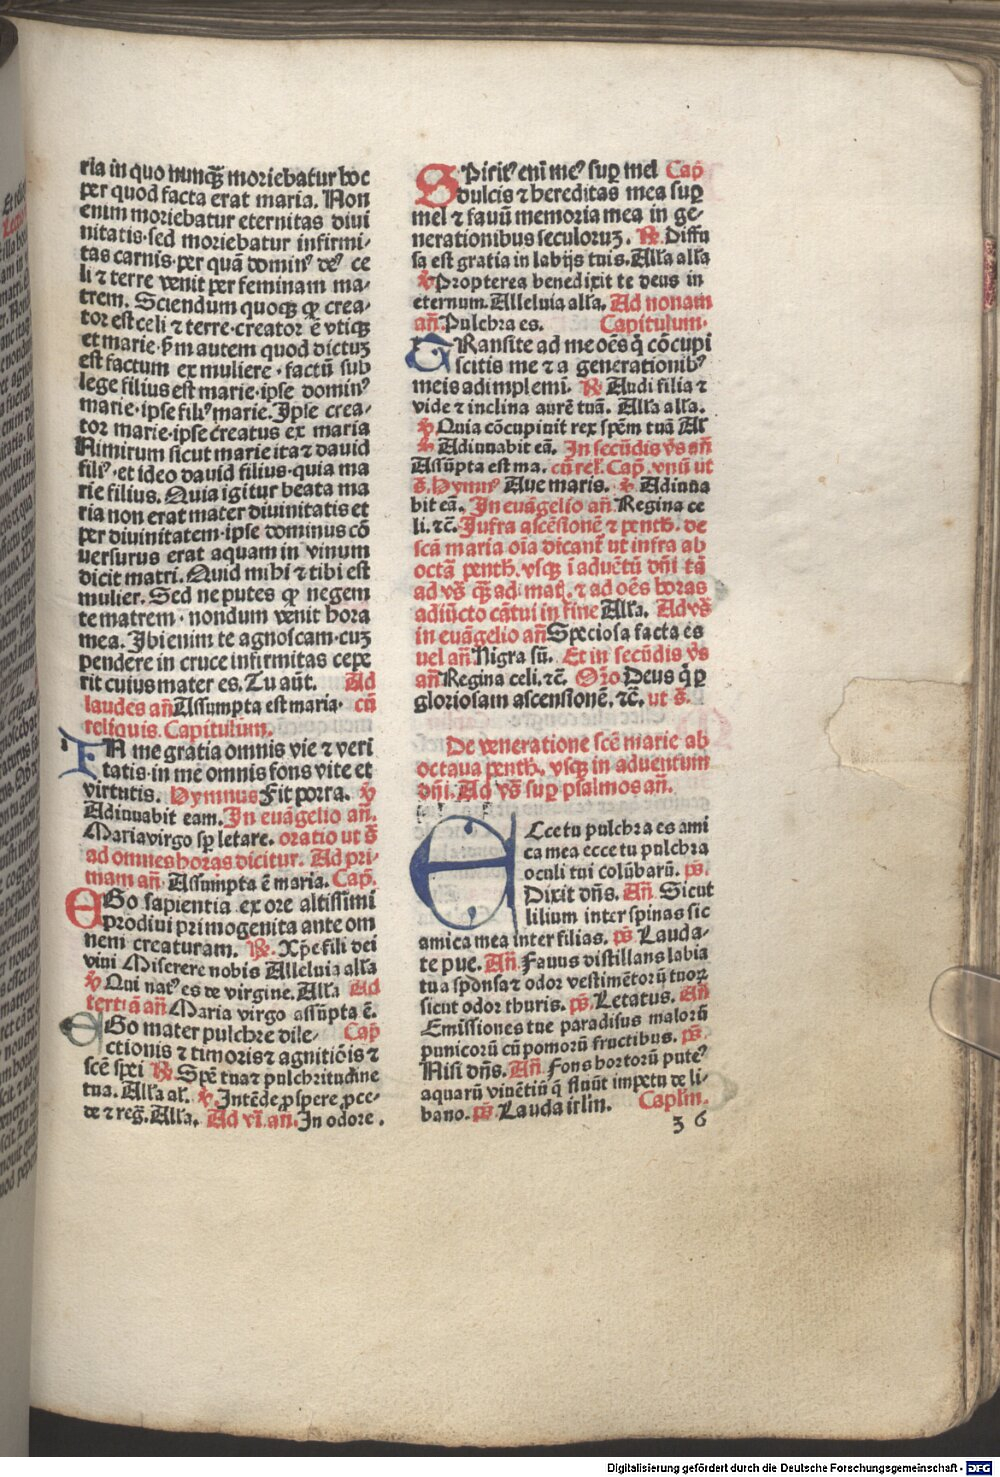 ria in quo nunq̃ȝ moriebatur hoc
per quod facta erat maria. Non
enim moriebatur eternitas divi
nitatis·sed moriebatur infirmi⸗
tas carnis·per quã domin⁹ de⁹ ce
li ⁊ terre venit per feminam ma⸗
trem. Sciendum quoqȝ ꝙ crea⸗
tor est celi ⁊ terre·creator ẽ vtiqȝ
et marie·p̃m autem quod dictuȝ
est factum ex muliere·factũ sub
lege filius est marie·ipse domin⁹
marie·ipse fili⁹ marie. Ipse crea⸗
tor marie·ipse creatus ex maria
Nimirum sicut marie ita ⁊ david
fili⁹·et ideo david filius·quia ma
rie filius. Quia igitur beata ma
ria non erat mater divinitatis et
per divinitatem·ipse dominus cõ
versurus erat aquam in vinum
dicit matri. Quid mihi ⁊ tibi est
mulier. Sed ne putes ꝙ negem
te matrem·nondum venit hora
mea. Ibi enim te agnoscam·cuȝ
pendere in cruce infirmitas cepe
rit cuius mater es. Tu aũt. Ad
laudes añ Assumpta est maria· cũ
reliquis. Capitulum.
IN me gratia omnis vie ⁊ veri
tatis·in me omnis fons vite et
virtutis. Hymnus Fit porta. ℣
Adiuuabit eam. In euãgelio añ.
Maria virgo sp̱ letare. oratio ut s̃
ad omnes horas dicitur. Ad pri⸗
mam añ Assumpta ẽ maria. Cap̃.
EGo sapientia ex ore altissimi
prodiui primogenita ante om
nem creaturam. ℟. Xp̃e fili dei
vivi Miserere nobis Alleluia all̃a
℣ Qui nat⁹ es de virgine. All̃a Ad
tertiã añ Maria virgo assũpta ẽ.
EGo mater pulchre dile⸗ Cap̃
ctionis ⁊ timoris ⁊ agnitiõis ⁊
scẽ spei ℟ Spẽ tua ⁊ pulchritudine
tua. All̃a al̃. ℣ Intẽde ꝓspere ꝓce⸗
de ⁊ reg̃. All̃a. Ad vĩ. añ. In odore.
SPirit⁹ eni me⁹ suꝑ mel Cap̃
dulcis ⁊ hereditas mea suꝑ
mel ⁊ fauũ memoria mea in ge⸗
nerationibus seculoruȝ. ℟. Diffu
sa est gratia in labijs tuis. All̃a all̃a
℣ Propterea benedixit te deus in
eternum. Alleluia all̃a. Ad nonam
añ. Pulchra es. Capitulum.
TRansite ad me oẽs q̃ cõcupi
scitis me ⁊ a generationib⁹
meis adimplemi. ℟ Audi filia ⁊
vide ⁊ inclina aurẽ tuã. All̃a all̃a.
℣ Quia cõcupiuit rex spẽm tuã Al̃
℣ Adiuuabit eã. In secũdis vs̃ añ
Assũpta est ma. cũ rel̃. Cap̃. vnũ ut
s̃. Hymn⁹ Aue maris. ℣ Adiuua
bit eã. In euãgelio añ. Regina ce
li. ⁊c̃. Infra ascẽsionẽ ⁊ penth̃. de
scã maria oĩa dicant̃ ut infra ab
octã penth̃. vsqȝ ĩ aduẽtũ dñi tã
ad vs̃ q̃ȝ ad mat̃. ⁊ ad oẽs horas
adiũcto cãtui in fine All̃a. Ad vs̃
in euãgelio añ Speciosa facta es
uel añ Nigra sũ. Et in secũdis vs̃
añ Regina celi. ⁊c̃. Orõ Deus q̃ ꝑ
gloriosam ascensionẽ. ⁊c̃. ut s̃.
De veneratione scẽ marie ab
octaua penth̃. vsqȝ in aduentum
dñi. Ad vs̃ suꝑ psalmos añ.
ECce tu pulchra es ami
ca mea ecce tu pulchra
oculi tui colũbarũ. ps̃.
Dixit dñs. Añ. Sicut
lilium inter spinas sic
amica mea inter filias. ps̃ Lauda⸗
te pue. Añ. Fauus distillans labia
tua sponsa ⁊ odor vestimẽtorũ tuoꝝ
sicut odor thuris. ps̃. Letatus. Añ
Emissiones tue paradisus malorũ
punicorũ cũ pomorũ fructibus. ps̃.
Nisi dñs. Añ. Fons hortorũ pute⁹
aquarũ viuẽtiũ q̃ fluũt impetu de li⸗
bano. ps̃ Lauda irl̃m. Capl̃m.
3 6
Digitalisierung gefördert durch die Deutsche Forschungsgemeinschaft - DFG